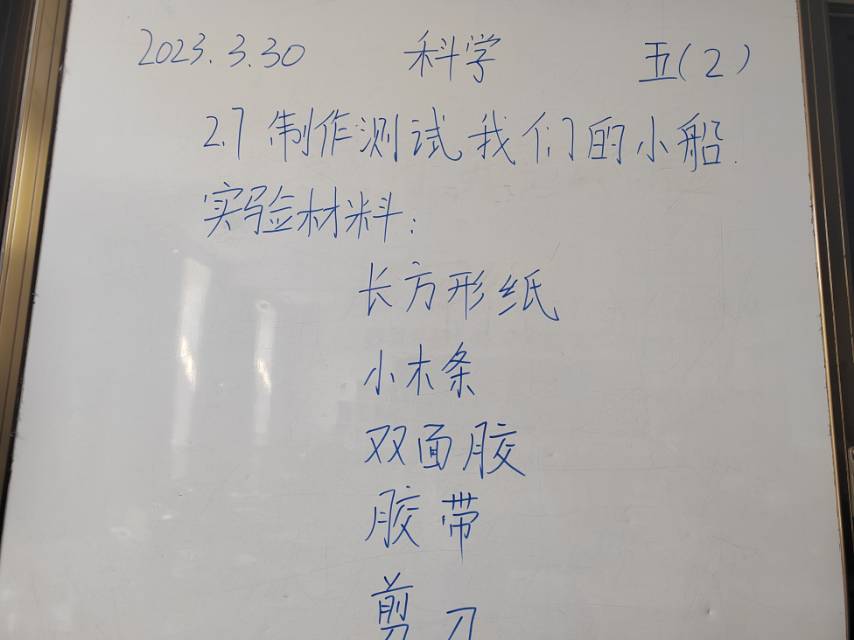 2023.3.30 科学 五(2)
2.7 制作测试我们的小船.
实验材料:
长方形纸
小木条
双面胶
胶带
剪刀